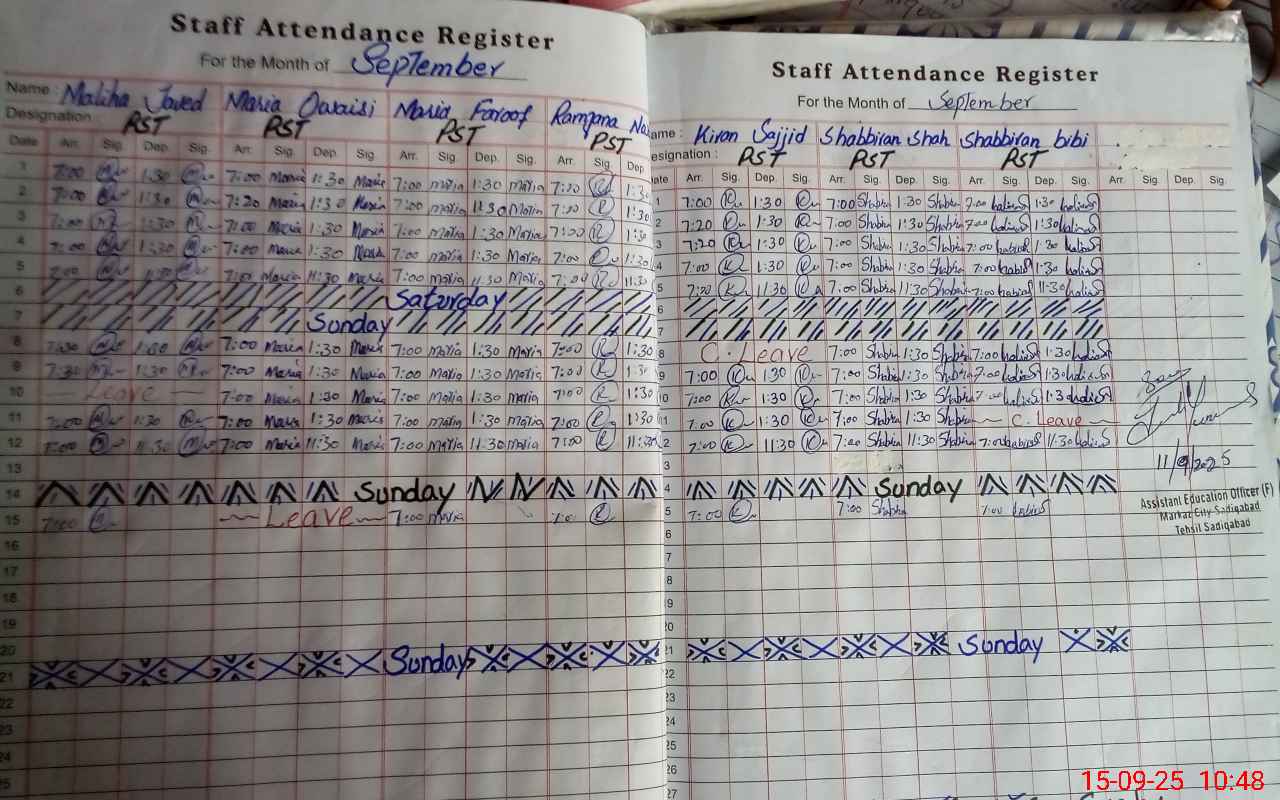 Staff Attendance Register
For the Month of September
Name : Maliha Javed Maria Owaisi Maria Farooq Ramzana
Designation : PST PST PST PST
Date Arr. Sig. Dep. Sig. Arr. Sig. Dep. Sig. Arr. Sig. Dep. Sig. Arr. Sig. Dep
1 7:00 1:30 7:00 Maria 1:30 Maria 7:00 Maria 1:30 Maria 7:00 1:30
2 7:00 1:30 7:20 Maria 1:30 Maria 7:00 Maria 1:30 Maria 7:00 1:30
3 7:00 1:30 7:00 Maria 1:30 Maria 7:00 Maria 1:30 Maria 7:00 1:30
4 7:00 1:30 7:00 Maria 1:30 Maria 7:00 Maria 1:30 Maria 7:00 1:30
5 7:00 11:30 7:00 Maria 11:30 Maria 7:00 Maria 11:30 Maria 7:00 11:30
6 Saturday
7 Sunday
8 7:30 1:30 7:00 Maria 1:30 Maria 7:00 Maria 1:30 Maria 7:00 1:30
9 7:30 1:30 7:00 Maria 1:30 Maria 7:00 Maria 1:30 Maria 7:00 1:30
10 Leave 7:00 Maria 1:30 Maria 7:00 Maria 1:30 Maria 7:00 1:30
11 7:00 1:30 7:00 Maria 1:30 Maria 7:00 Maria 1:30 Maria 7:00 1:30
12 7:00 11:30 7:00 Maria 11:30 Maria 7:00 Maria 11:30 Maria 7:00 11:30
13
14 Sunday
15 7:00 Leave 7:00 Maria 7:00
16
17
18
19
20
21 Sunday
22
23
24
25
Staff Attendance Register
For the Month of September
ame : Kiran Sajjid Shabbiran Shah Shabbiran bibi
esignation : PST PST PST
ate Arr. Sig. Dep. Sig. Arr. Sig. Dep. Sig. Arr. Sig. Dep. Sig. Arr. Sig. Dep. Sig.
1 7:00 1:30 7:00 Shabbi 1:30 Shabbi 7:00 1:30
2 7:20 1:30 7:00 Shabbi 1:30 Shabbi 7:00 1:30
3 7:20 1:30 7:00 Shabbi 1:30 Shabbi 7:00 1:30
4 7:00 1:30 7:00 Shabbi 1:30 Shabbi 7:00 1:30
5 7:00 11:30 7:00 Shabbi 11:30 Shabbi 7:00 11:30
6
7
8 C. Leave 7:00 Shabbi 1:30 Shabbi 7:00 1:30
9 7:00 1:30 7:00 Shabbi 1:30 Shabbi 7:00 1:30
10 7:00 1:30 7:00 Shabbi 1:30 Shabbi 7:00 1:30
11 7:00 1:30 7:00 Shabbi 1:30 Shabbi C. Leave
2 7:00 11:30 7:00 Shabbi 11:30 Shabbi 7:00 11:30
3
4 Sunday
5 7:00 7:00 Shabbi 7:00
6
7
8
9
20
21 Sunday
22
23
24
25
26
27
11/9/2025
Assistant Education Officer (F)
Markaz City Sadiqabad
Tehsil Sadiqabad
15-09-25 10:48